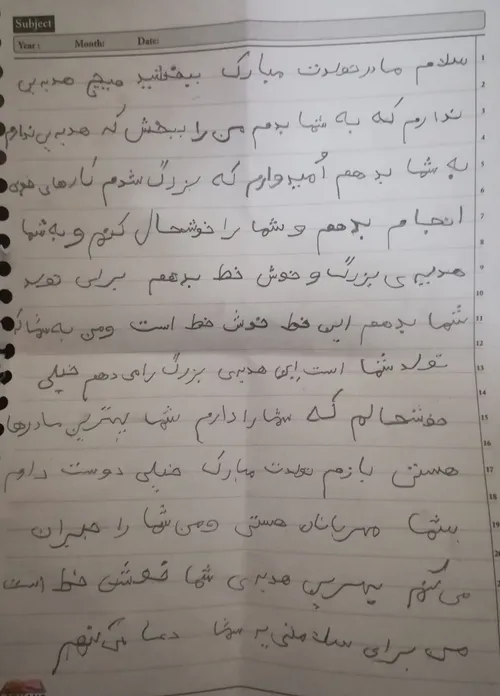 Subject
Year: Month: Date:
سلام مادر تولدت مبارک ببخشید هیچ هدیه یی
ندارم که به شما بدم من را ببخش که هدیه یی ندارم
به شما بدهم اُمیدوارم که بزرگ شدم کارهای خوب
انجام بدهم و شما را خوشحال کنم و به شما
هدیه ی بزرگ و خوش خط بدهم برای تولد
شما بدهم این خط خوش خط است ومن به شما که
تولد شما است این هدیه ی بزرگ را می دهم خیلی
خوشحالم که شما را دارم شما بهترین مادرها
هستی بازم تولدت مبارک خیلی دوست دارم
شما مهربانان هستی ومن شما را جبران
می کنم بهترین هدیه ی شما خوش خط است
من برای سلامتی یه شما دعا می کنم
1
2
3
4
5
6
7
8
9
10
11
12
13
14
15
16
17
18
19
20